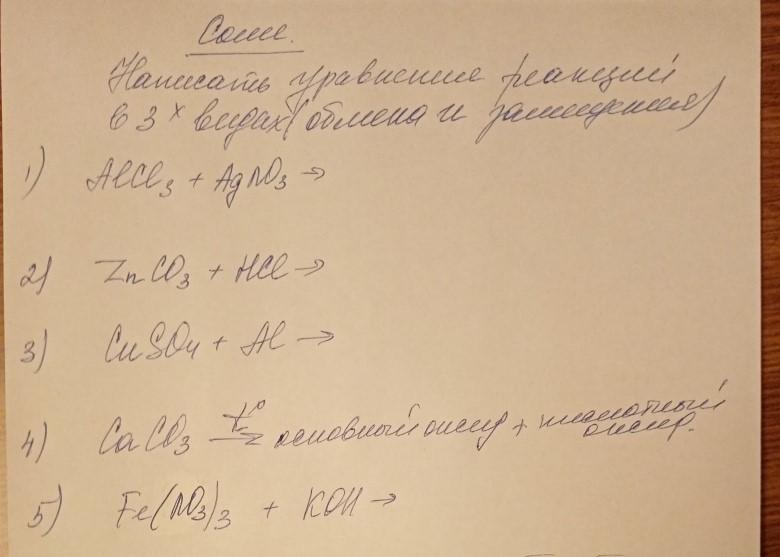 Соли.
Написать уравнение реакций
в 3х видах (обмена и замещения)
1) AlCl3 + AgNO3 →
2) ZnCO3 + HCl →
3) CuSO4 + Al →
4) CaCO3 t° → основный оксид + кислотный
оксид.
5) Fe(NO3)3 + KOH →